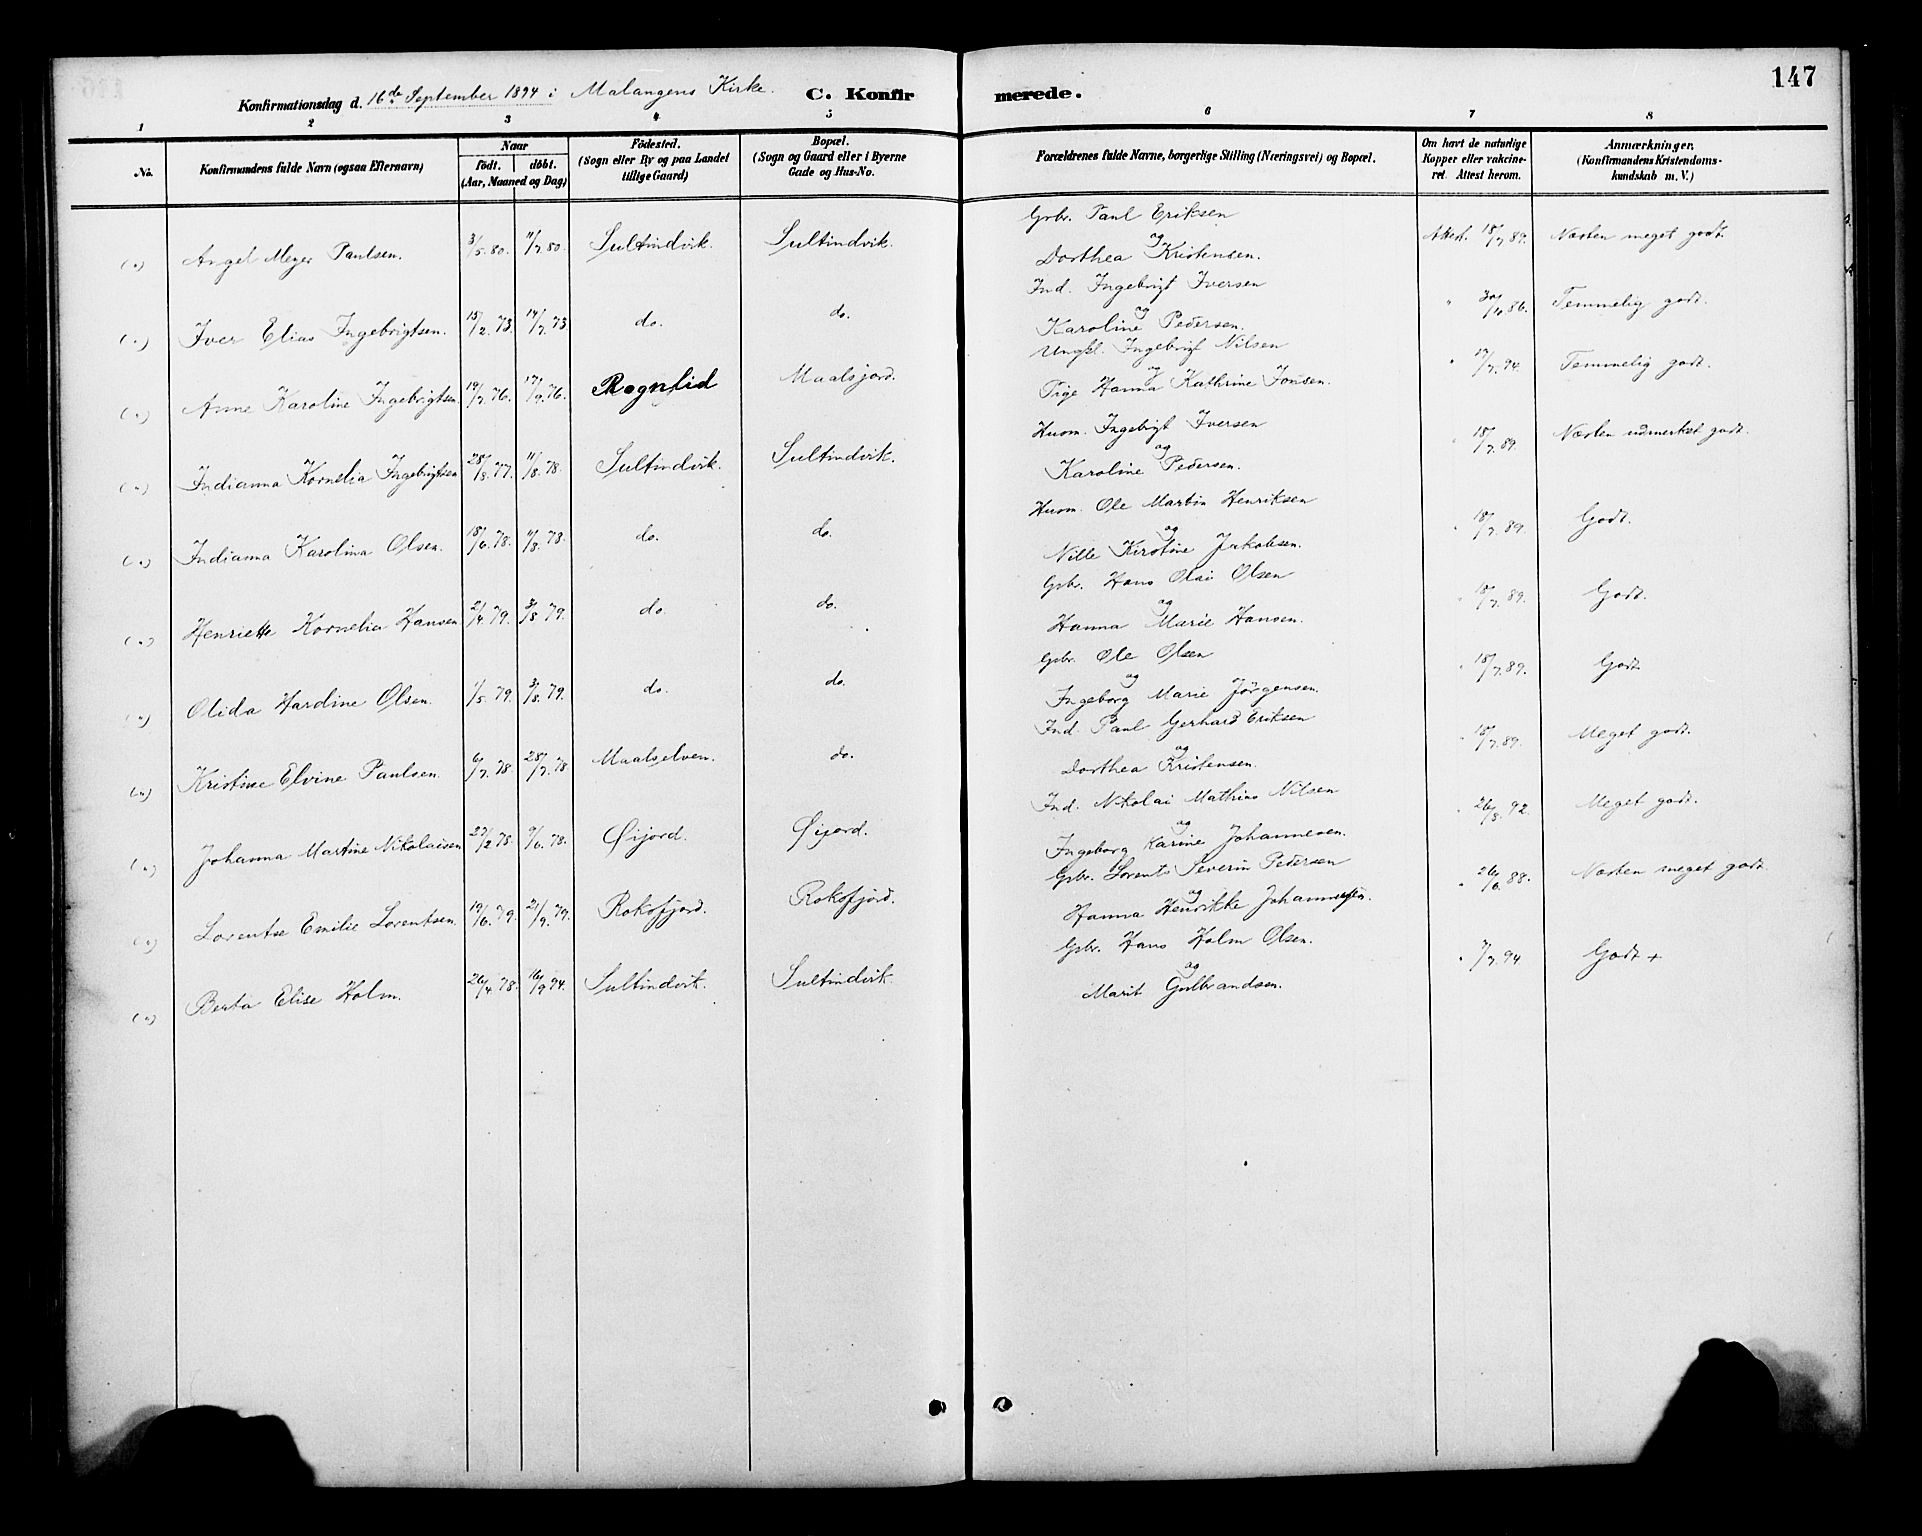 147
Konfirmationsdag d. 16de September 1894 i Malangens Kirke. C. Konfirmerede.
1 2 3 4 5 6 7 8
No. Konfirmandens fulde Navn (ogsaa Efternavn) Naar födt. döbt. (Aar, Maaned og Dag) Födested. (Sogn eller By og paa Landet tillige Gaard) Bopæl. (Sogn og Gaard eller i Byerne Gade og Hus-No. Forældrenes fulde Navne, borgerlige Stilling (Næringsvei) og Bopæl. Om havt de naturlige Kopper eller vakcineret. Attest herom. Anmærkninger. (Konfirmandens Kristendomskundskab m. V.)
(„) Angel Meyer Paulsen. 3/5.80. 11/7.80. Sultindvik. Sultindvik. Gbr. Paul Eriksen og Dorthea Kristensen. Attest. 18/7.89. Næsten meget godt.
(„) Iver Elias Ingebrigtsen. 15/2.73. 14/7.73 do. do. Ind. Ingebrigt Iversen og Karoline Pedersen. „ 30/10.86. Temmelig godt.
(„) Anne Karoline Ingebrigtsen. 19/7.76. 17/9.76. Rognlid Maalsjord. Ungkl. Ingebrigt Nilsen og Pige Hanna Kathrine Jonsen. „ 17/7.94. Temmelig godt.
(„) Indianna Kornelia Ingebrigtsen 28/8.77. 11/8.78. Sultindvik. Sultindvik. Husm. Ingebrigt Iversen og Karoline Pedersen. „ 18/7.89. Næsten udmerket godt.
(„) Indianna Karolina Olsen. 18/6.78. 11/8.78 do. do. Husm. Ole Martin Henriksen og Nille Kirstine Jakobsen. „ 18/7.89. Godt.
(„) Henriette Kornelia Hansen. 2/4.79. 3/8.79. do. do. Gbr. Hans Olai Olsen og Hanna Marie Hansen. „ 18/7.89. Godt.
(„) Olida Hardine Olsen. 1/5.79. 3/8.79. do. do. Gbr. Ole Olsen og Ingeborg Marie Jörgensen. „ 18/7.89. Godt
(„) Kristine Elvine Paulsen. 6/7.78. 28/7.78 Maalselven. do. Ind. Paul Gerhard Eriksen og Dorthea Kristensen. „ 18/7.89. Meget godt.
(„) Johanna Martine Nikolaisen 23/2.78. 9/6.78. Øijord. Øijord. Ind. Nikolai Mathias Nilsen og Ingeborg Karine Johannesen. „ 26/8.92. Meget godt.
(„) Lorentse Emilie Lorentsen. 19/6.79. 21/9.79. Roksfjord. Roksfjord. Gbr. Lorents Severin Pedersen og Hanna Henrikke Johannessen. „ 26/6.88. Næsten meget godt
(„) Berta Elise Holm. 26/4.78. 16/9.94. Sultindvik. Sultindvik. Gbr. Hans Holm Olsen. og Marit Gulbrandsen. „ 7/7.94 Godt +